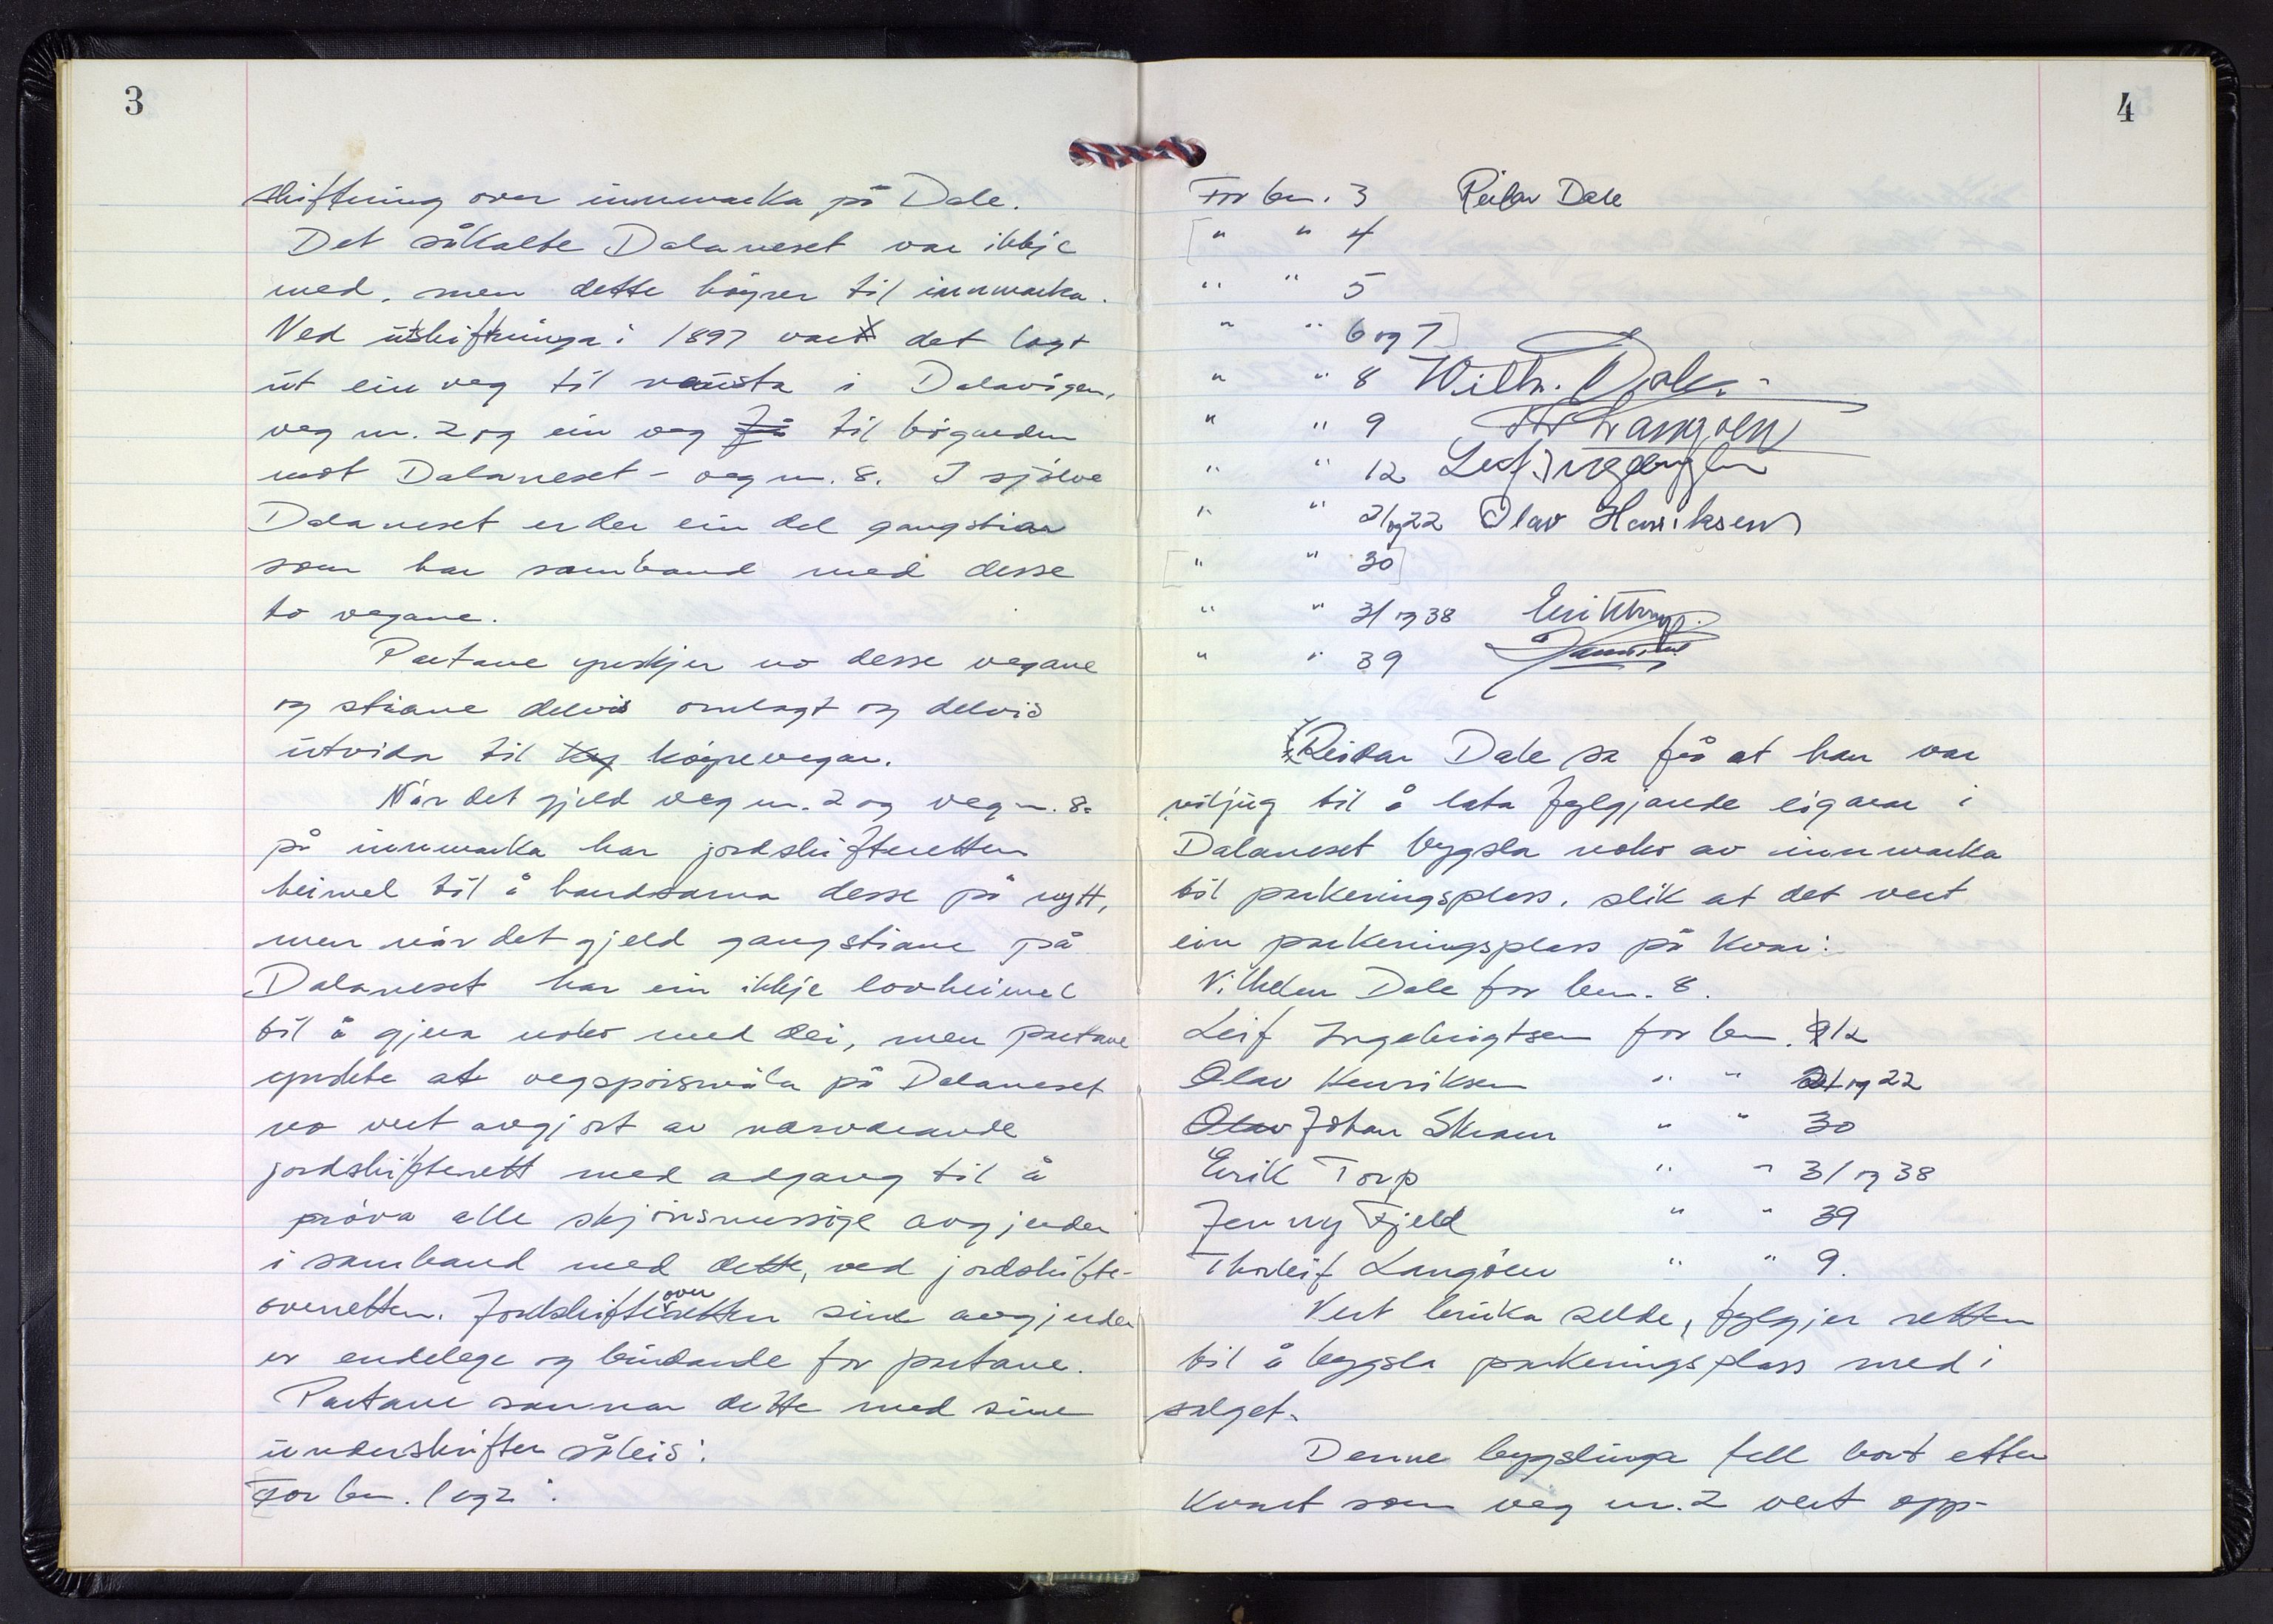 3
skiftning over innmarka på Dale.
Det såkalte Dalaneset var ikkje
med, men dette høyrer til innmarka.
Ved utskiftninga i 1897 vart det lagt
ut ein veg til nausta i Dalavågen,
veg nr. 2 og ein veg frå til bøgarden
mot Dalaneset - veg nr. 8. I sjølve
Dalaneset er der ein del gangstiar
som har samband med desse
to vegane.
Partane ynskjer no desse vegane
og stiane delvis omlagt og delvis
utvida til køyrevegar.
Når det gjeld veg nr. 2 og veg nr. 8
på innmarka har jordskifteretten
heimel til å handsama desse på nytt,
men når det gjeld gangstiane på
Dalaneset har ein ikkje lovheimel
til å gjera noko med dei, men partane
ynskte at vegspørsmåla på Dalaneset
no vert avgjort av nærverande
jordskifterett med adgang til å
prøva alle skjønsmessige avgjerder
i samband med dette, ved jordskifte-
overretten. Jordskifteoverretten sine avgjerder
er endelege og bindande for partane.
Partane sannar dette med sine
underskrifter såleis:
For bnr. 1 og 2:
4
For bnr. 3 Reidar Dale
[ " " 4
" " 5
" " 6 og 7]
" " 8 Wilh. Dale
" " 9 Th Langøen
" " 12 Leif Ingebrigtsen
" " 21 og 22 Olav Henriksen
[ " " 30]
" " 31 og 38 Erik Thorp
" " 39
Reidar Dale sa frå at han var
viljug til å lata fylgjande eigarar i
Dalaneset bygsla noko av innmarka
til parkeringsplass, slik at det vert
ein parkeringsplass på kvar:
Vilhelm Dale for bnr. 8.
Leif Ingebrigtsen for bnr. 12
Olav Henriksen " " 21 og 22
Olav Johan Skram " " 30
Erik Torp " " 31 og 38
Jenny Fjeld " " 39
Thorleif Langøen " " 9.
Vert bruka selde, fylgjer retten
til å bygsla parkeringsplass med i
salget.
Denne bygslinga fell bort etter
kvart som veg nr. 2 vert opp-